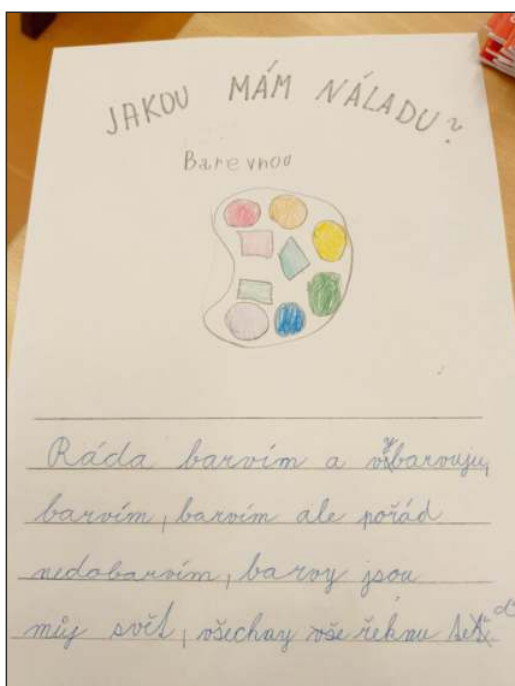 JAKOU MÁM NÁLADU?
Barevnou
Ráda barvím a vybarvuju,
barvím, barvím ale pořád
nedobarvím, barvy jsou
můj svět, všechny vše řeknu teď